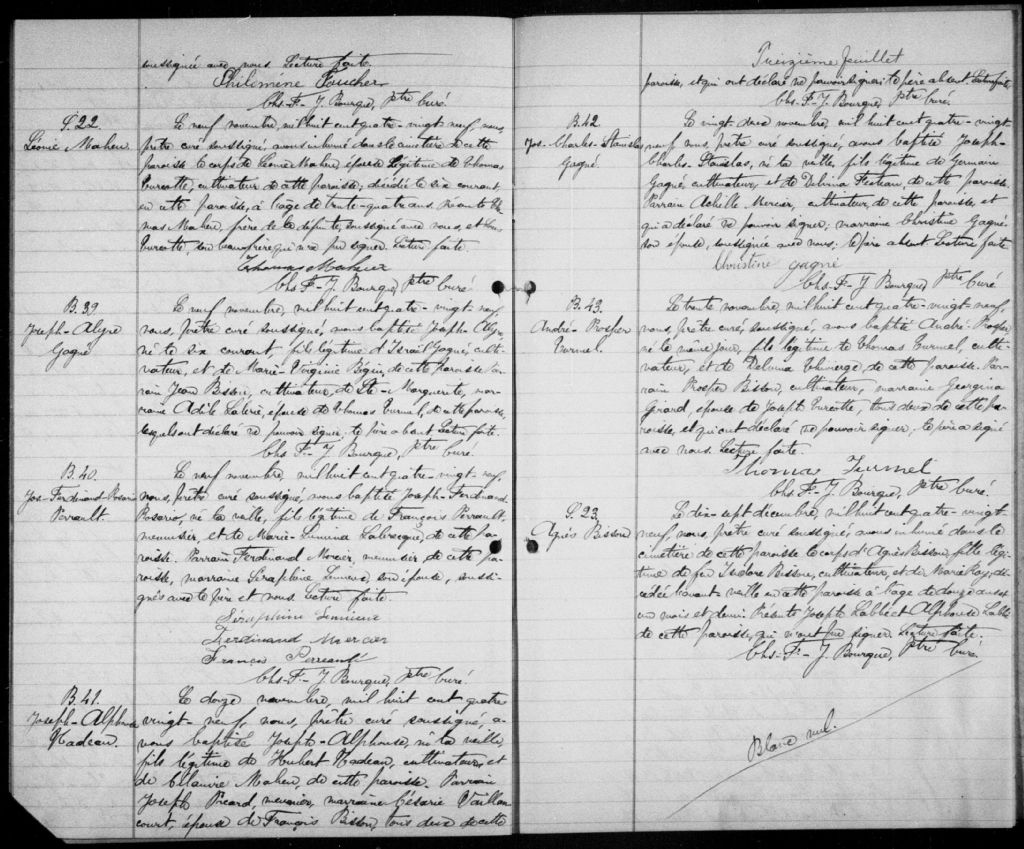 soussignée avec nous Lecture faite
Philomène Foucher
Chs-F-J. Bourque, ptre curé
S.22.
Léonie Maheu
Le neuf novembre, mil huit cent quatre-vingt neuf, nous,
prêtre curé soussigné, avons inhumé dans le cimetière de cette
paroisse le corps de Léonie Maheu, épouse légitime de Thomas
Turcotte, cultivateur de cette paroisse; décédée le six courant
en cette paroisse, à l'âge de trente-quatre ans. Présents Tho
mas Maheu, frère de la défunte, soussigné avec nous, et
Turcotte, son beau frère qui n'a pu signer. Lecture faite.
Thomas Maheux
Chs-F-J Bourque, ptre curé
B.39.
Joseph-Algre
Gagné
Le neuf novembre, mil huit cent quatre-vingt-neuf,
nous, prêtre curé soussigné, avons baptisé Joseph-
né le six courant, fils légitime d'Israël Gagné, culti-
vateur, et de Marie-Virginie Bégin, de cette paroisse. Par-
rain Jean Bisson, cultivateur, de Ste-Marguerite, mar-
raine Adèle épouse de Thomas Turmel, de cette paroisse,
lesquels ont déclaré ne pouvoir signer; le père absent. Lecture faite.
Chs F-J Bourque, ptre curé.
B.40.
Jos-Ferdinand-Rosario
Perrault.
Le neuf novembre, mil huit cent quatre-vingt-neuf,
nous, prêtre curé soussigné, avons baptisé Joseph-Ferdinand-
Rosario, né la veille, fils légitime de François Perrault,
menuisier et de Marie- de cette pa-
roisse. Parrain Ferdinand Mercier, menuisier, de cette pa-
roisse, marraine Séraphine Lemieux, son épouse, soussi-
gnés avec le père et nous. Lecture faite.
Séraphine Lemieux
Ferdinand Mercier
François Perreault
Chs-F-J. Bourque, ptre curé.
B.41.
Joseph-Alphonse
Nadeau.
Le douze novembre, mil huit cent quatre
vingt-neuf, nous, prêtre curé soussigné, a-
vons baptisé Joseph-Alphonse, né la veille
fils légitime de Hubert Nadeau, cultivateur, et
de Maheu, de cette paroisse. Parrain
Joseph Picard, meunier, marraine Césarie Vaillan
court, épouse de François Bisson, tous deux de cette
Treizième feuillet
paroisse, et qui ont déclaré ne pouvoir signer; le père absent. Lecture faite.
Chs-F-J. Bourque, ptre curé.
B.42.
Jos-Charles-Stanislas
Gagné.
Le vingt deux novembre, mil huit cent quatre-vingt
neuf nous, prêtre curé soussigné, avons baptisé Joseph-
Charles-Stanislas, né la veille, fils légitime de Germain
Gagné, cultivateur, et de Delvina Fecteau, de cette paroisse.
Parrain Achille Mercier, cultivateur, de cette paroisse, et
qui a déclaré ne pouvoir signer; marraine Christine Gagné,
son épouse, soussignée avec nous; le père absent Lecture faite
Christine gagné
Chs-F-J Bourque, ptre curé
B.43.
André-Prosper
Turmel.
Le trente novembre, mil huit cent quatre-vingt-neuf,
nous, prêtre curé, soussigné, avons baptisé André-Prosper
né le même jour, fils légitime de Thomas Turmel, culti-
vateur, et de Delvina Thivierge, de cette paroisse. Par-
rain Prosper Bisson, cultivateur, marraine Georgina
Girard, épouse de Joseph Turcotte, tous deux de cette pa-
roisse, et qui ont déclaré ne pouvoir signer; le père a signé
avec nous. Lecture faite.
Thomas Turmel
Chs-F-J. Bourque, ptre curé.
S.23.
Agnès Bisson
Le dix-sept décembre, mil huit cent quatre-vingt
neuf, nous, prêtre curé soussigné, avons inhumé dans le
cimetière de cette paroisse le corps d'Agnès Bisson, fille légi-
time de feu Isidore Bisson, cultivateur, et de Marie Roy, dé-
cédée l'avant-veille en cette paroisse à l'âge de douze ans
un mois et demi. Présents Joseph Labbé et Alphonse Labbé
de cette paroisse, qui n'ont pu signer. Lecture faite.
Chs-F-J. Bourque, ptre curé.
Blanc nul.